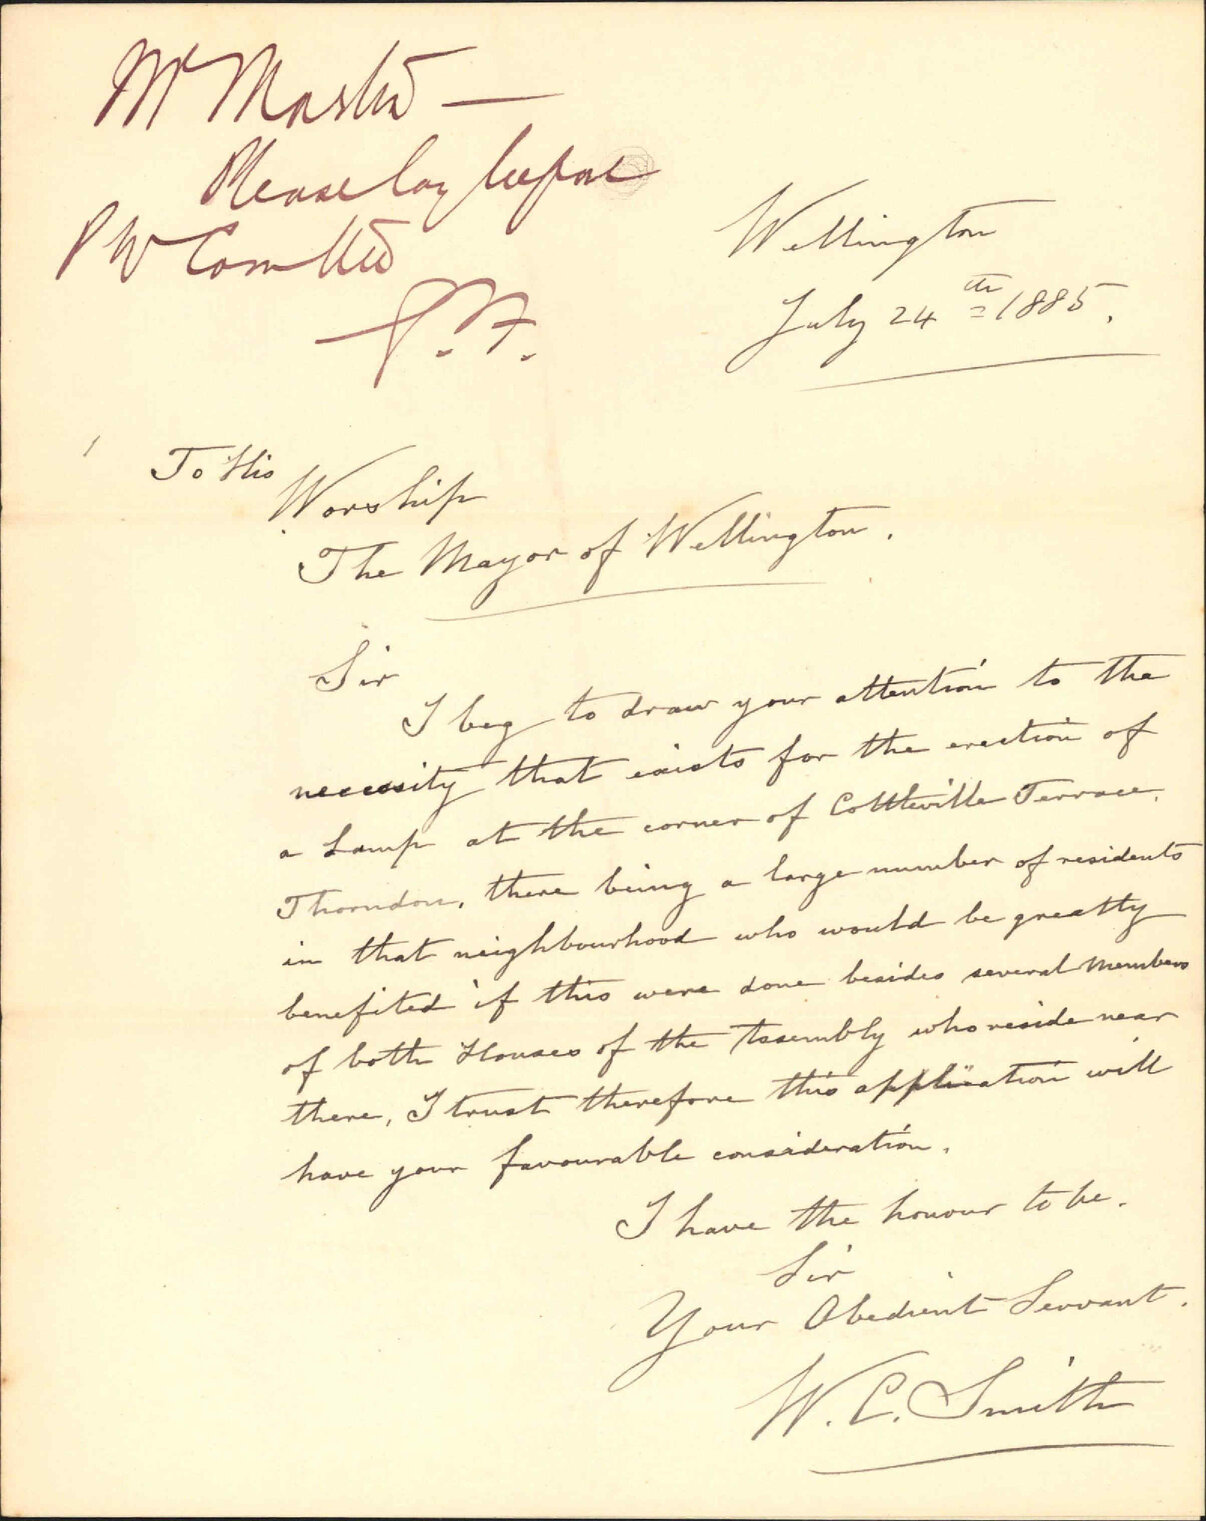 Mr Martin —
Please lay before
P W Comttee
Wellington
July 24th 1885.
To His
Worship
The Mayor of Wellington.
Sir
I beg to draw your attention to the
necessity that exists for the erection of
a Lamp at the corner of Cottleville Terrace.
Thorndon, there being a large number of residents
in that neighbourhood who would be greatly
benefited if this were done besides several Members
of both Houses of the Assembly who reside near
there, I trust therefore this application will
have your favourable consideration.
I have the honour to be.
Sir
Your Obedient Servant.
W. C. Smith